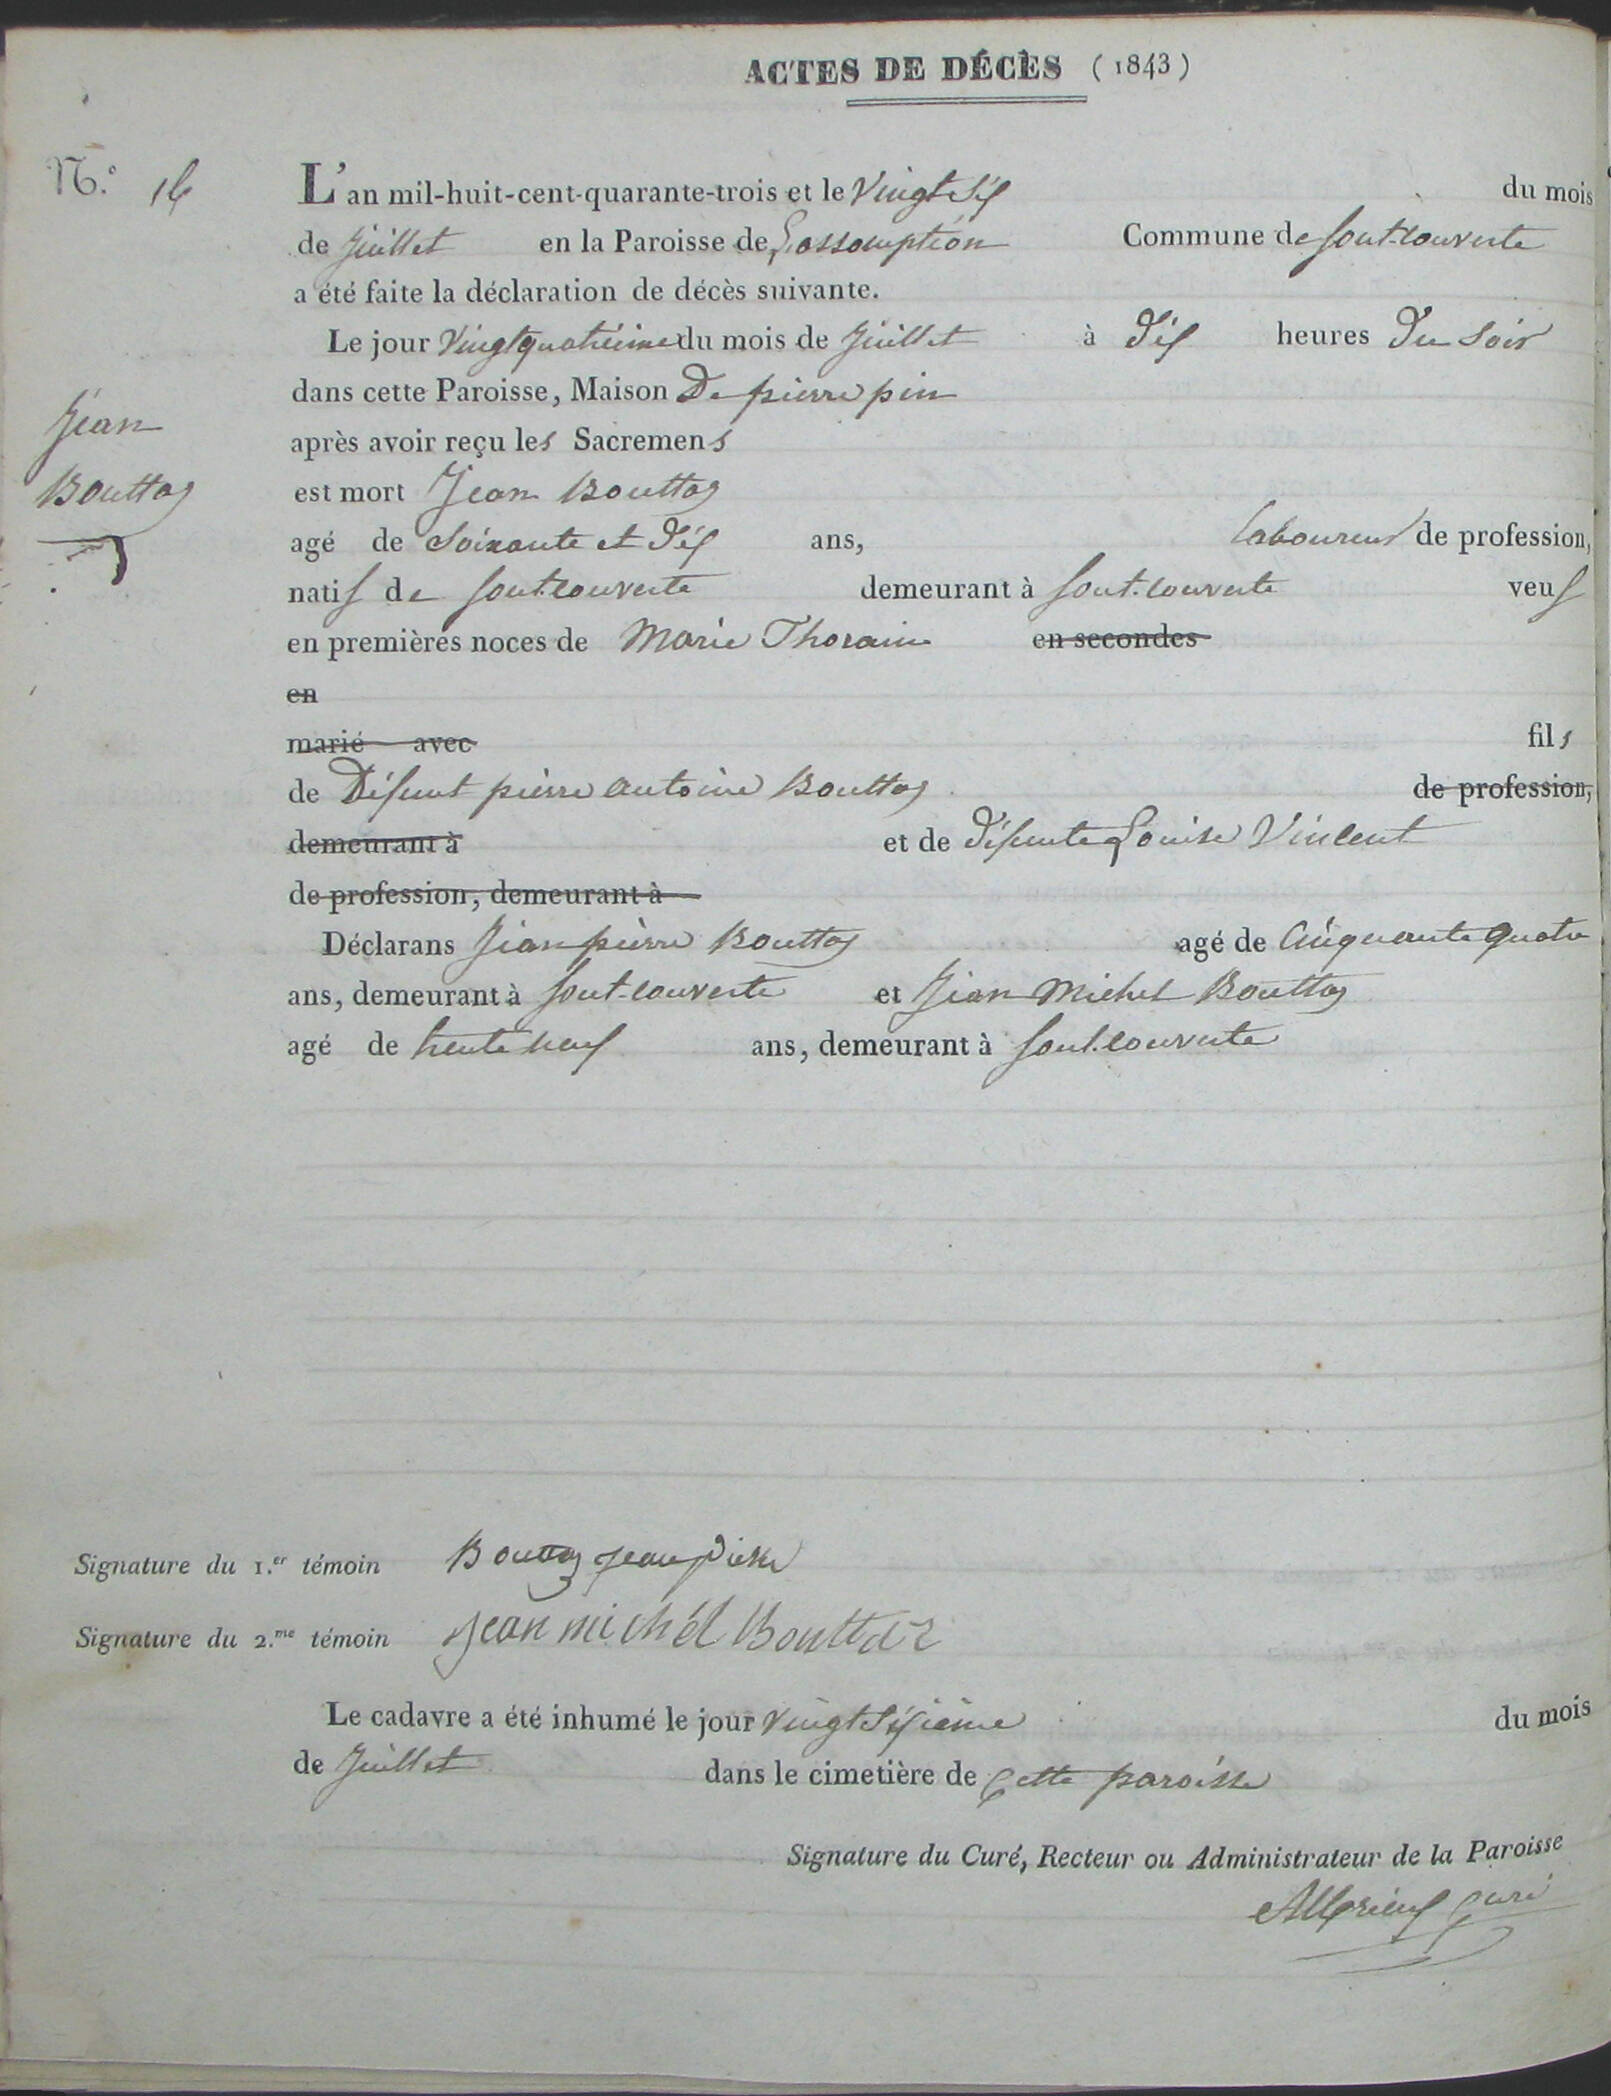 ACTES DE DÉCÈS (1843)
N.o 16 L'an mil-huit-cent-quarante-trois et le Vingt Six du mois
de Juillet en la Paroisse de L'assomption Commune de font-couverte
a été faite la déclaration de décès suivante.
Le jour Vingtquatrième du mois de Juillet à Dix heures Du Soir
dans cette Paroisse, Maison De pierre pin
après avoir reçu les Sacremens
Jean
Bouttaz
est mort Jean Bouttaz
agé de Soixante et Dix ans, laboureur de profession,
natif de font.couverte demeurant à font.couverte veuf
en premières noces de Marie Thorain en secondes
en
marié avec fils
de Défunt pierre antoine Bouttaz de profession,
demeurant à et de défunte Louise Vincent
de profession, demeurant à
Déclarans Jean pierre Bouttaz agé de Cinquante quatre
ans, demeurant à font-couverte et Jean Michel Bouttaz
agé de trente neuf ans, demeurant à font.couverte
Signature du 1.er témoin Bouttaz jean pierre
Signature du 2.me témoin jean michél Bouttaz
Le cadavre a été inhumé le jour vingt Sixième du mois
de Juillet dans le cimetière de Cette paroisse
Signature du Curé, Recteur ou Administrateur de la Paroisse
curé